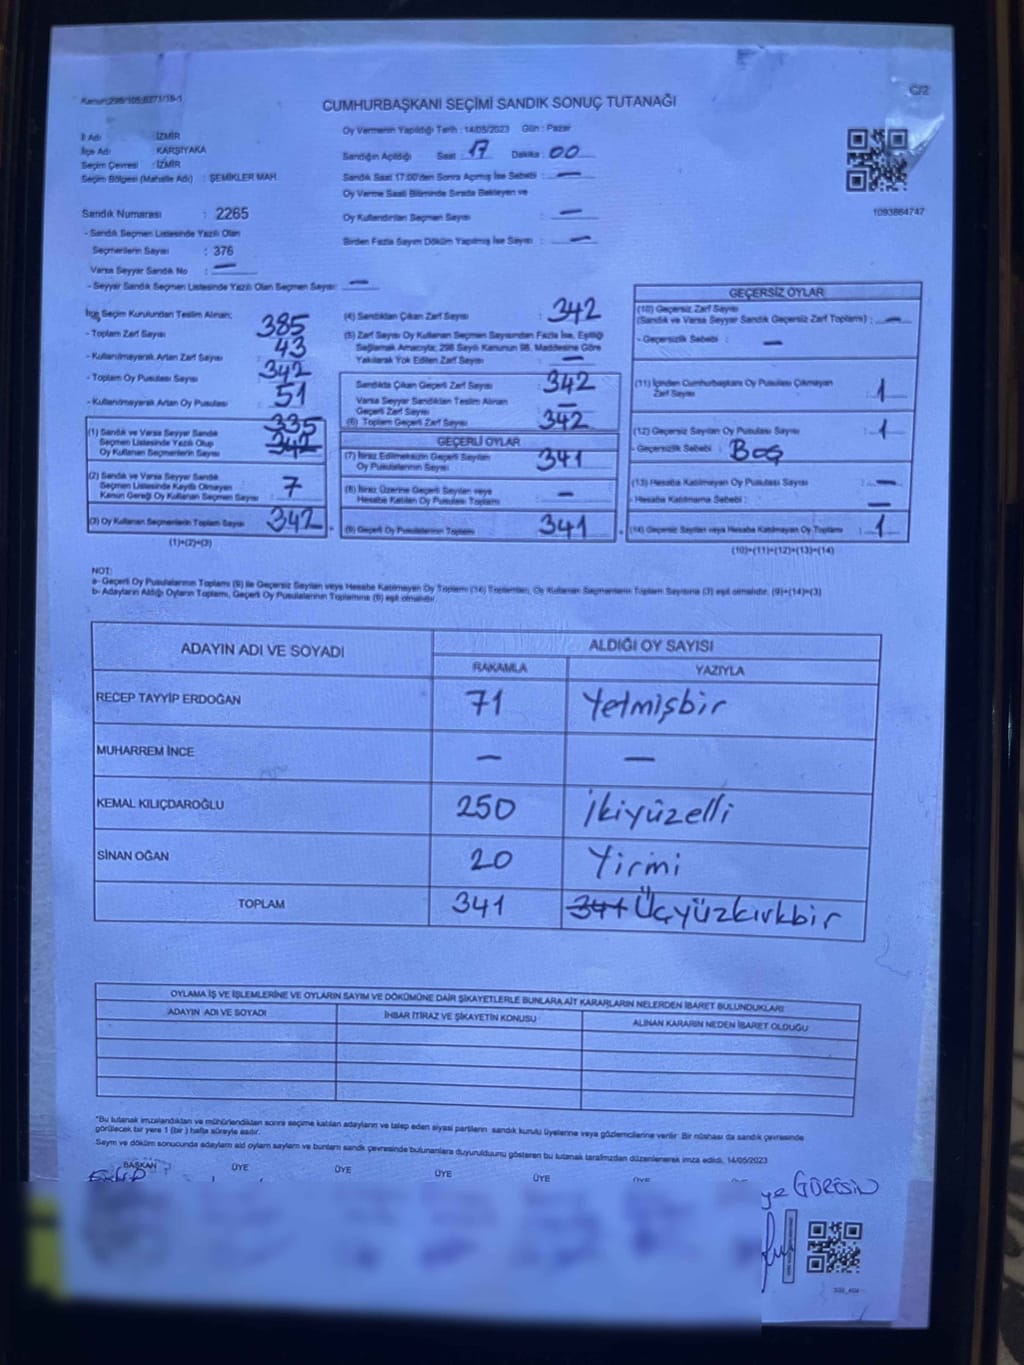 Kanun:298/105,6271/18-1
C/2
CUMHURBAŞKANI SEÇİMİ SANDIK SONUÇ TUTANAĞI
İl Adı : İZMİR
İlçe Adı : KARŞIYAKA
Seçim Çevresi : İZMİR
Seçim Bölgesi (Mahalle Adı) : ŞEMİKLER MAH.
Sandık Numarası : 2265
- Sandık Seçmen Listesinde Yazılı Olan
Seçmenlerin Sayısı : 376
Varsa Seyyar Sandık No : —
- Seyyar Sandık Seçmen Listesinde Yazılı Olan Seçmen Sayısı: —
Oy Vermenin Yapıldığı Tarih : 14/05/2023 Gün : Pazar
Sandığın Açıldığı Saat : 17 Dakika : 00
Sandık Saat 17:00'den Sonra Açılmış İse Sebebi : —
Oy Verme Saati Bitiminde Sırada Bekleyen ve
Oy Kullandırılan Seçmen Sayısı : —
Birden Fazla Sayım Döküm Yapılmış İse Sayısı : —
1093864747
İlçe Seçim Kurulundan Teslim Alınan;
- Toplam Zarf Sayısı : 385
- Kullanılmayarak Artan Zarf Sayısı : 43
- Toplam Oy Pusulası Sayısı : 342
- Kullanılmayarak Artan Oy Pusulası : 51
(1) Sandık ve Varsa Seyyar Sandık
Seçmen Listesinde Yazılı Olup
Oy Kullanan Seçmenlerin Sayısı : 335 342
(2) Sandık ve Varsa Seyyar Sandık
Seçmen Listesinde Kayıtlı Olmayan
Kanun Gereği Oy Kullanan Seçmen Sayısı : 7
(3) Oy Kullanan Seçmenlerin Toplam Sayısı : 342
(1)+(2)=(3)
(4) Sandıktan Çıkan Zarf Sayısı : 342
(5) Zarf Sayısı Oy Kullanan Seçmen Sayısından Fazla İse, Eşitliği
Sağlamak Amacıyla; 298 Sayılı Kanunun 98. Maddesine Göre
Yakılarak Yok Edilen Zarf Sayısı : —
Sandıkta Çıkan Geçerli Zarf Sayısı : 342
Varsa Seyyar Sandıktan Teslim Alınan
Geçerli Zarf Sayısı : —
(6) Toplam Geçerli Zarf Sayısı : 342
GEÇERLİ OYLAR
(7) İtiraz Edilmeksizin Geçerli Sayılan
Oy Pusulalarının Sayısı : 341
(8) İtiraz Üzerine Geçerli Sayılan veya
Hesaba Katılan Oy Pusulası Toplamı : —
(9) Geçerli Oy Pusulalarının Toplamı : 341
GEÇERSİZ OYLAR
(10) Geçersiz Zarf Sayısı
(Sandık ve Varsa Seyyar Sandık Geçersiz Zarf Toplamı) : —
- Geçersizlik Sebebi : —
(11) İçinden Cumhurbaşkanı Oy Pusulası Çıkmayan
Zarf Sayısı : 1
(12) Geçersiz Sayılan Oy Pusulası Sayısı : 1
- Geçersizlik Sebebi : Boş
(13) Hesaba Katılmayan Oy Pusulası Sayısı : —
- Hesaba Katılmama Sebebi : —
(14) Geçersiz Sayılan veya Hesaba Katılmayan Oy Toplamı : 1
(10)+(11)+(12)+(13)=(14)
NOT:
a- Geçerli Oy Pusulalarının Toplamı (9) ile Geçersiz Sayılan veya Hesaba Katılmayan Oy Toplamı (14) Toplamları, Oy Kullanan Seçmenlerin Toplam Sayısına (3) eşit olmalıdır. (9)+(14)=(3)
b- Adayların Aldığı Oyların Toplamı, Geçerli Oy Pusulalarının Toplamına (9) eşit olmalıdır.
ADAYIN ADI VE SOYADI
ALDIĞI OY SAYISI
RAKAMLA YAZIYLA
RECEP TAYYİP ERDOĞAN 71 Yetmişbir
MUHARREM İNCE — —
KEMAL KILIÇDAROĞLU 250 İkiyüzelli
SİNAN OĞAN 20 Yirmi
TOPLAM 341 341 Üçyüzkırkbir
OYLAMA İŞ VE İŞLEMLERİNE VE OYLARIN SAYIM VE DÖKÜMÜNE DAİR ŞİKAYETLERLE BUNLARA AİT KARARLARIN NELERDEN İBARET BULUNDUKLARI
ADAYIN ADI VE SOYADI
İHBAR İTİRAZ VE ŞİKAYETİN KONUSU
ALINAN KARARIN NEDEN İBARET OLDUĞU
*Bu tutanak imzalandıktan ve mühürlendikten sonra seçime katılan adayların ve talep eden siyasi partilerin sandık kurulu üyelerine veya gözlemcilerine verilir. Bir nüshası da sandık çevresinde
görülecek bir yere 1 (bir) hafta süreyle asılır.
Sayım ve döküm sonucunda adayların ald oyların sayların ve bunların sandık çevresinde bulunanlara duyurulduğunu gösteren bu tutanak tarafımızdan düzenlenerek imza edildi. 14/05/2023
BAŞKAN ÜYE ÜYE ÜYE ÜYE ÜYE